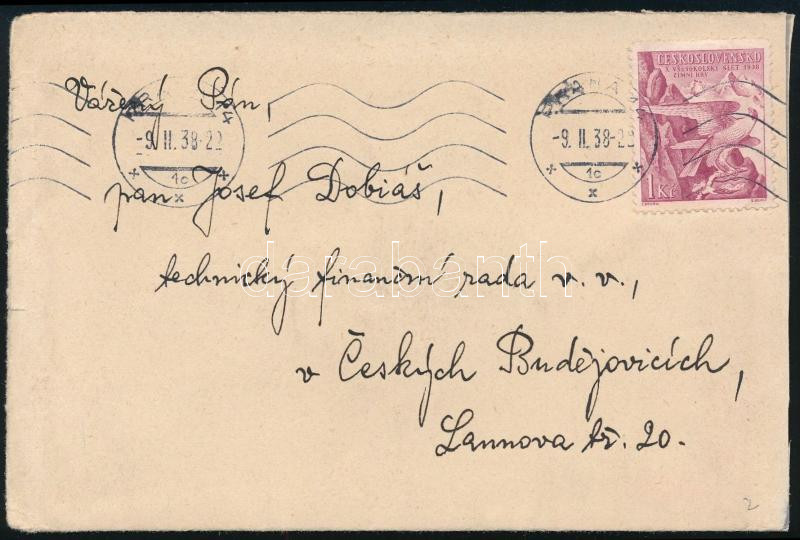 Vážený Pán,
pan Josef Dobiáš,
technický finanční rada v. v.,
v Českých Budějovicích,
Lannova tř. 20.
PRAHA
-9. II. 38-22
1c
PRAHA
-9. II. 38-22
1c
ČESKOSLOVENSKO
X. VŠESOKOLSKÝ SLET 1938
ZIMNÍ HRY
1 Kč
darabanth
2